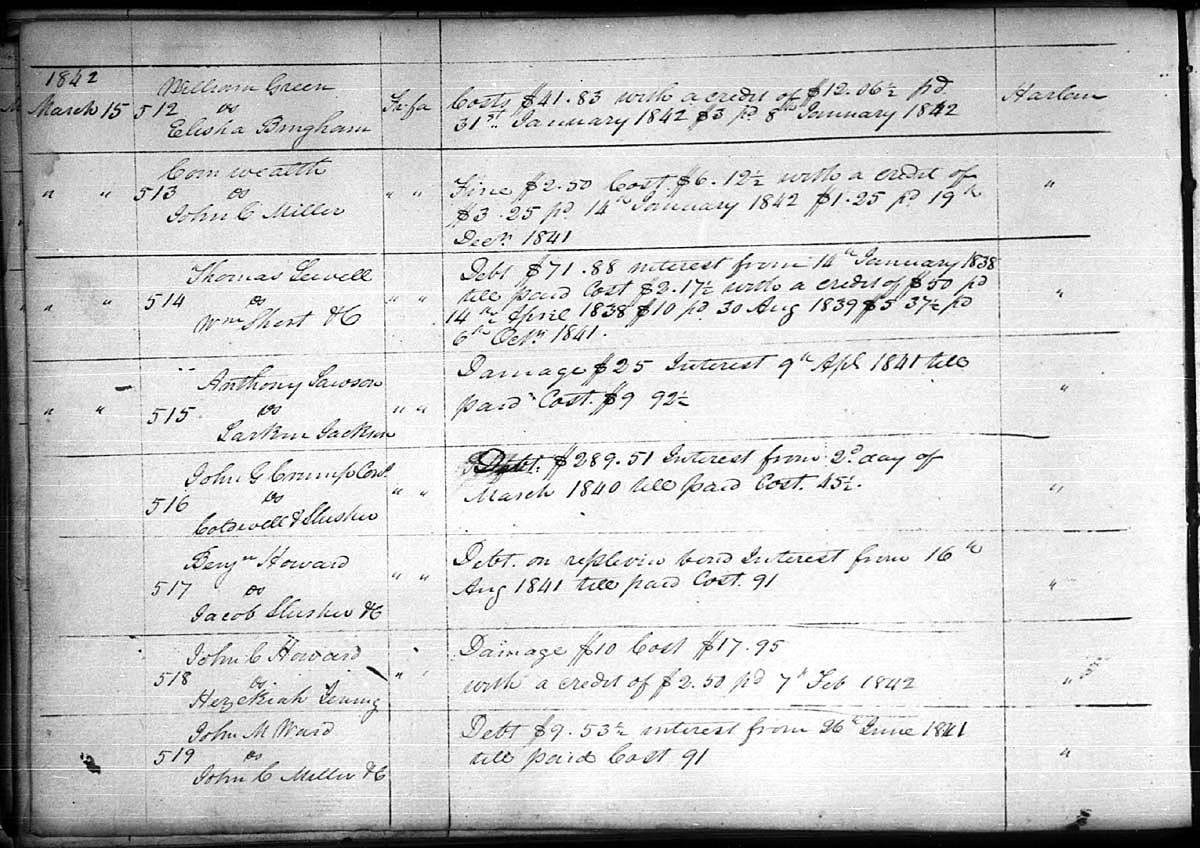 1842
William Green
March 15 512 vs Fi fa Costs $41.83 with a credit of $12.06½ pd Harlan
Elisha Bingham 31st January 1842 $3 pd 8th January 1842
Comwealth
" " 513 vs " " Fine $2.50 Cost $6.12½ with a credit of "
John C Miller $3.25 pd 14th January 1842 $1.25 pd 19th
Decr 1841
Thomas Lewell Debt $71.88 interest from 14th January 1838
" " 514 vs " " till paid Cost $2.17½ with a credit of $50 pd "
Wm Short &C 14th April 1838 $10 pd 30 Aug 1839 $5 37½ pd
6th Octr 1841.
Anthony Lawson Damage $25 Interest 9th Apl 1841 till
" " 515 vs " " paid Cost $9 92½ "
Larkin Jackson
John G Crump Debt. $289.51 Interest from 2d day of
516 vs " " March 1840 till paid Cost. 45½. "
Coldwell & Slusher
Benjn Howard Debt. on replevin bond Interest from 16th
517 vs " " Aug 1841 till paid Cost. 91 "
Jacob Slusher &C
John C Howard Damage $10 Cost $17.95
518 vs " " with a credit of $2.50 pd 7th Feb 1842 "
Hezekiah
John M Ward Debt $9.53½ interest from 26th June 1841
519 vs till paid Cost 91 "
John C Miller &C